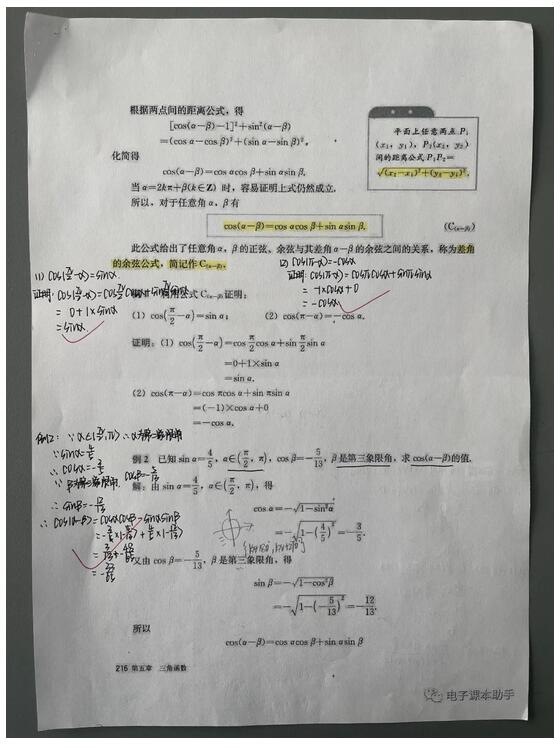 根据两点间的距离公式，得
[cos(α－β)－1]²＋sin²(α－β)
＝(cos α－cos β)²＋(sin α－sin β)²,
化简得
cos(α－β)＝cos αcos β＋sin αsin β.
当 α＝2kπ＋β(k∈Z) 时，容易证明上式仍然成立.
所以，对于任意角 α，β 有
cos(α－β)＝cos αcos β＋sin αsin β. (C(α－β))
平面上任意两点 P₁
(x₁，y₁)，P₂(x₂，y₂)
间的距离公式 P₁P₂＝
√(x₂－x₁)²＋(y₂－y₁)².
此公式给出了任意角 α，β 的正弦、余弦与其差角 α－β 的余弦之间的关系，称为差角
的余弦公式，简记作 C(α－β).
(1) cos(π/2－α)＝sinα.
证明: cos(π/2－α)＝cosπ/2cosα＋sinπ/2sinα
＝ 0＋1×sinα
＝sinα.
(2) cos(π－α)＝－cosα
证明: cos(π－α)＝cosπcosα＋sinπsinα
＝－1×cosα＋0
＝－cosα.
用公式 C(α－β)证明：
(1) cos(π/2－α)＝sin α； (2) cos(π－α)＝－cos α.
证明：(1) cos(π/2－α)＝cos π/2 cos α＋sin π/2 sin α
＝0＋1×sin α
＝sin α.
(2) cos(π－α)＝cos πcos α＋sin πsin α
＝(－1)×cos α＋0
＝－cos α.
例2: ∵α∈(π/2,π) ∴α为第二象限角
∵sinα＝4/5
∴cosα＝－3/5
∵β为第三象限角, cosβ＝－5/13
∴sinβ＝－12/13
∴cos(α－β)＝cosαcosβ＋sinαsinβ
＝－3/5×(－5/13)＋4/5×(－12/13)
＝－33/65
例 2 已知 sin α＝4/5，α∈(π/2，π)，cos β＝－5/13，β 是第三象限角，求 cos(α－β)的值.
解：由 sin α＝4/5，α∈(π/2，π)，得
cos α＝－√1－sin²α
＝－√1－(4/5)²＝－3/5.
又由 cos β＝－5/13，β 是第三象限角，得
sin β＝－√1－cos²β
＝－√1－(－5/13)²＝－12/13.
所以
cos(α－β)＝cos αcos β＋sin αsin β
216 第五章 三角函数
电子课本助手